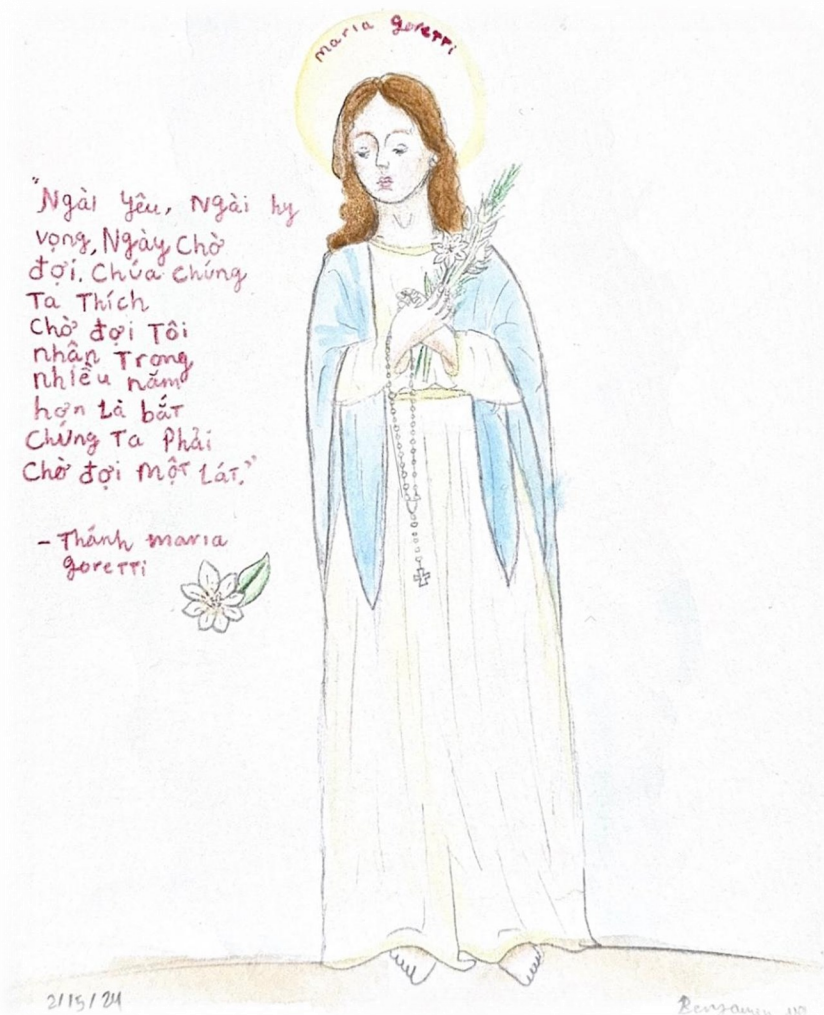 maria goretti
"Ngài yêu, Ngài hy
vọng, Ngày Chờ
đợi. Chúa Chúng
Ta Thích
Chờ đợi Tôi
nhân Trong
nhiều năm
hơn Là bắt
Chúng Ta Phải
Chờ đợi một Lát."
- Thánh maria
goretti
2/15/24